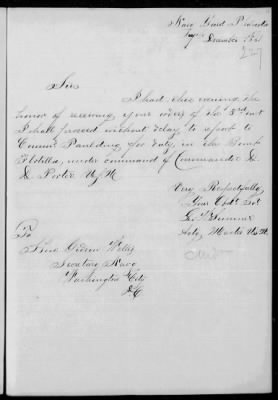 Navy Yard
December
227
Sir
I had, this evening, the
honor of receiving your orders of the 3rd inst
I shall proceed without delay to report to
Comm. Paulding for duty, in the Bomb
Flotilla, under command of Commander D.
D. Porter U.S.N.
Very Respectfully
Your Obdt. Svt
Acty. Master U.S.N.
To
Hon. Gideon Welles
Secretary Navy
Washington City
D.C.